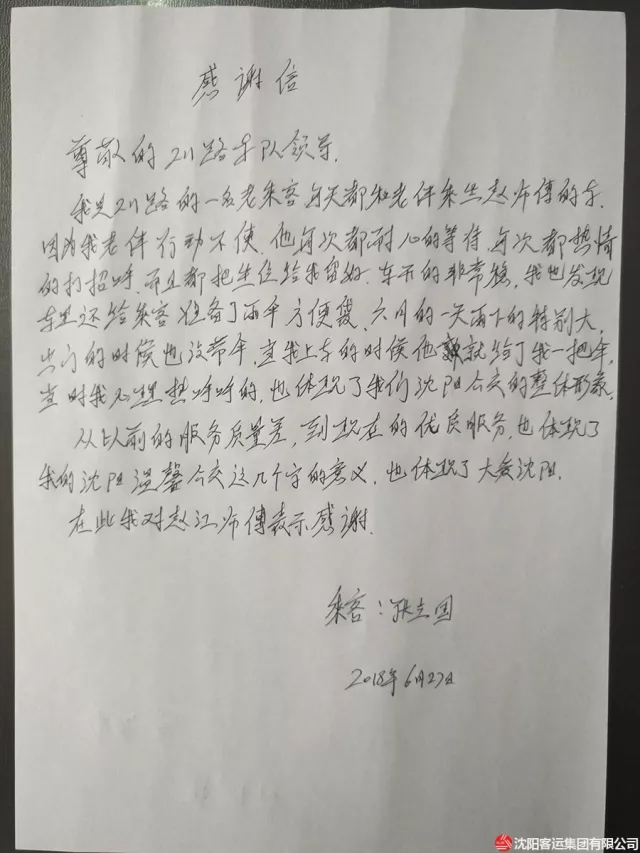 感谢信
尊敬的211路车队领导.
我是211路的一名老乘客每天都和老伴乘坐赵师傅的车.
因为我老伴行动不便.他每次都耐心的等待.每次都热情
的打招呼.而且都把坐位给我留好.车开的非常稳,我也发现
车里还给乘客准备了雨伞方便袋.六月的一天雨下的特别大,
出门的时候也没带伞,当我上车的时候他就给了我一把伞,
当时我心里热呼呼的,也体现了我们沈阳公交的整体形象.
从以前的服务质量差,到现在的优质服务,也体现了
我的沈阳温馨公交这几个字的意义,也体现了大美沈阳.
在此我对赵江师傅表示感谢.
乘客:张志国
2018年6月27日
沈阳客运集团有限公司